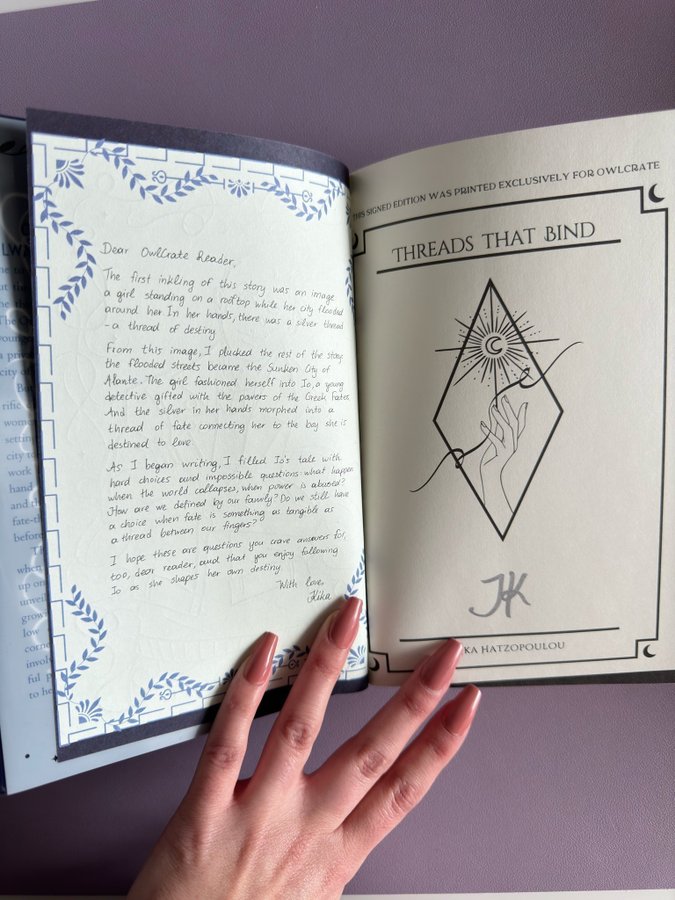 Dear OwlCrate Reader,
The first inkling of this story was an image
a girl standing on a rooftop while her city flooded
around her. In her hands, there was a silver thread
- a thread of destiny.
From this image, I plucked the rest of the story:
the flooded streets became the Sunken City of
Alante. The girl fashioned herself into Io, a young
detective gifted with the powers of the Greek Fates.
And the silver in her hands morphed into a
thread of fate connecting her to the boy she is
destined to love.
As I began writing, I filled Io's tale with
hard choices and impossible questions: what happens
when the world collapses, when power is abused?
How are we defined by our family? Do we still have
a choice when fate is something as tangible as
a thread between our fingers?
I hope these are questions you crave answers for,
too, dear reader, and that you enjoy following
Io as she shapes her own destiny.
With love,
Kika
THIS SIGNED EDITION WAS PRINTED EXCLUSIVELY FOR OWLCRATE
THREADS THAT BIND
KA HATZOPOULOU